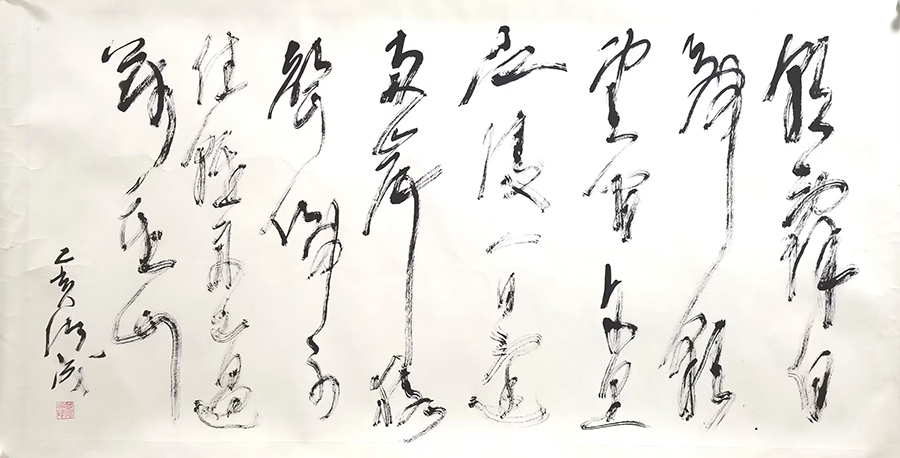 朝辭白
帝彩
雲間千里
江陵一日還
兩岸猿
聲啼不
住輕舟已過
萬重山